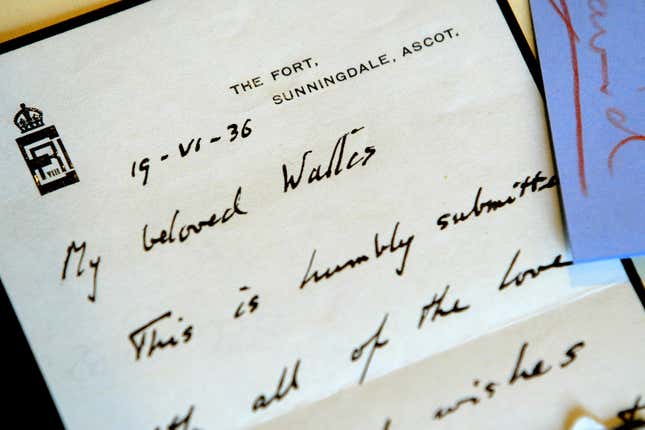 THE FORT,
SUNNINGDALE, ASCOT.
VIII
19-VI-36
My beloved Wallis
This is humbly submitte
all of the love
wishes